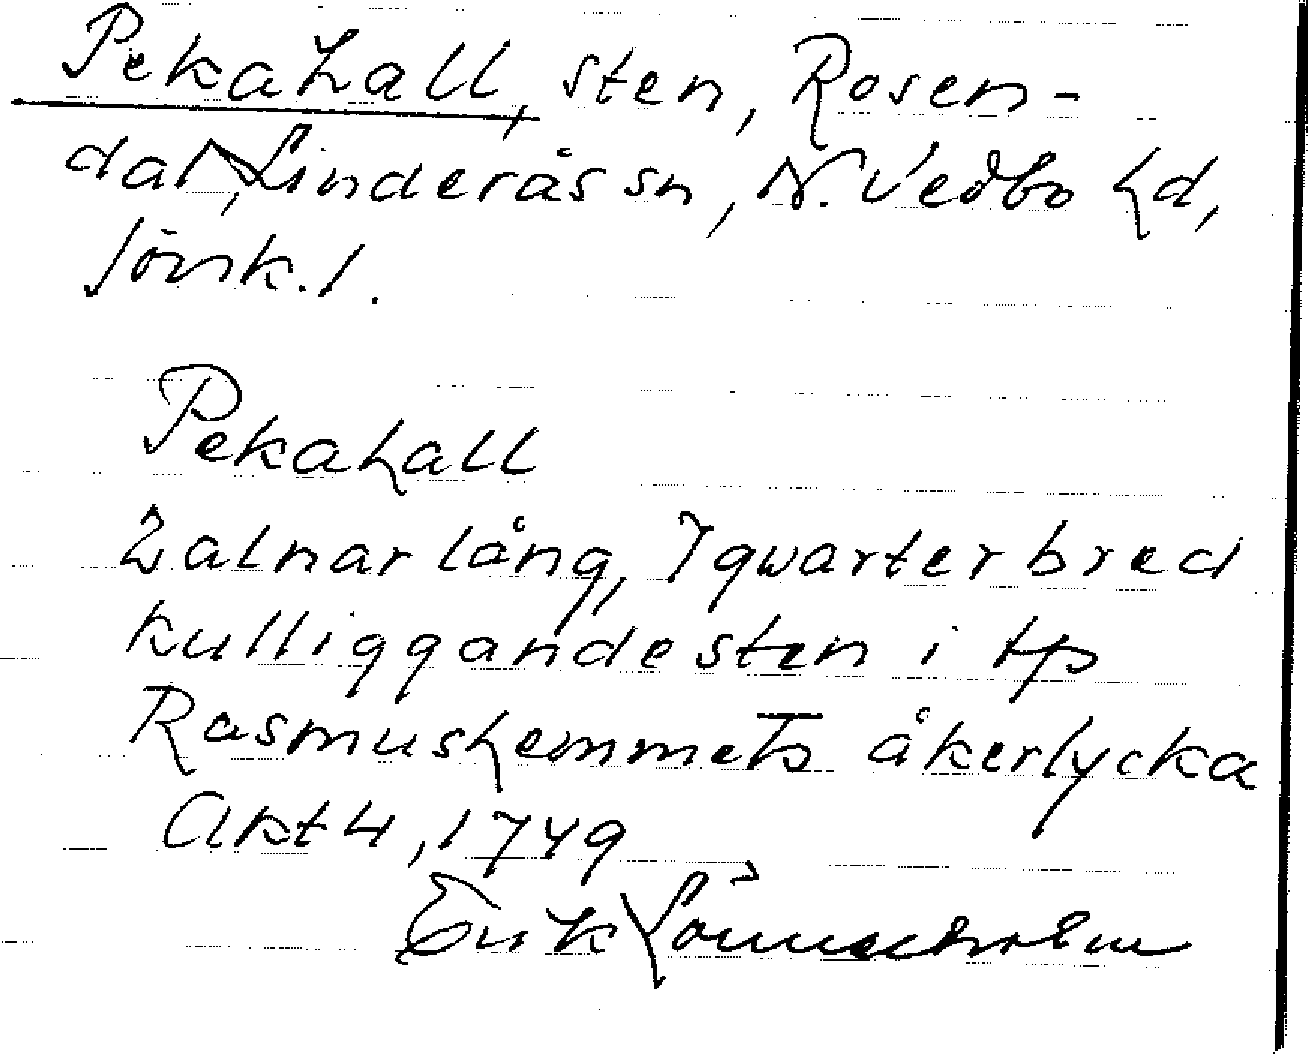 Pekahall, sten, Rosen-
dal, Linderås sn, N. Vedbo hd,
Jönk. l.
Pekahall
2 alnar lång, 7 qwarter bred
kulliggande sten i
Rasmushemmets åkerlycka
Akt 4, 1749
Erik